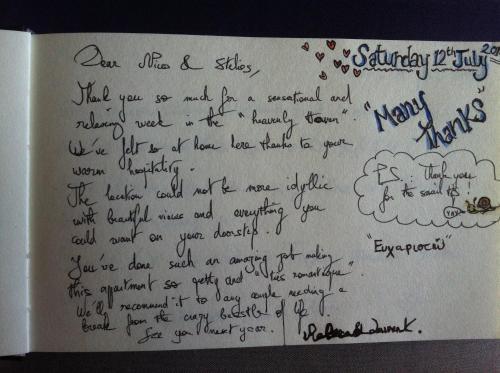 Dear Nico & Stelios,
Thank you so much for a sensational and
relaxing week in the "heavenly Haven".
We've felt so at home here thanks to your
warm hospitality.
The location could not be more idyllic
with beautiful views and everything you
could want on your doorstep.
You've done such an amazing job making
this apartment so pretty and "très romantique".
We'll recommend it to any couple needing a
break from the crazy beastle of life.
See you next year.
Rebecca & Laurent.
Saturday 12th July
"Many
Thanks"
P.S.: Thank you
for the snail tips!
YAY
"Ευχαριστώ"